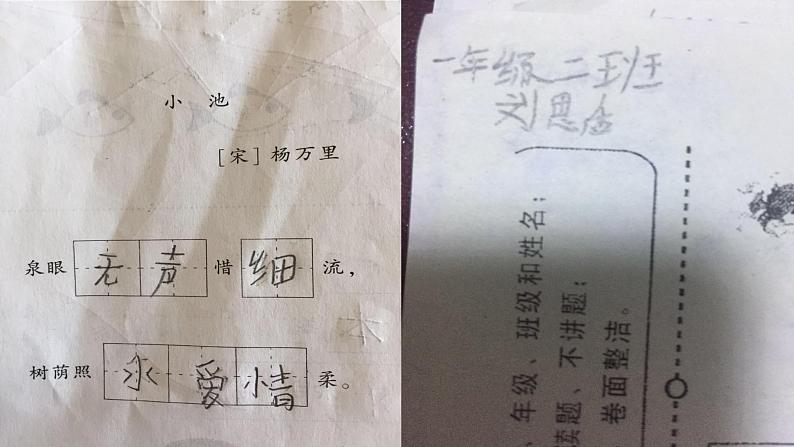 小 池
[宋] 杨万里
泉眼无声惜细流，
树荫照水爱情柔。
一年级二班
刘思
、年级、班级和姓名；
读题、不讲题；
卷面整洁。